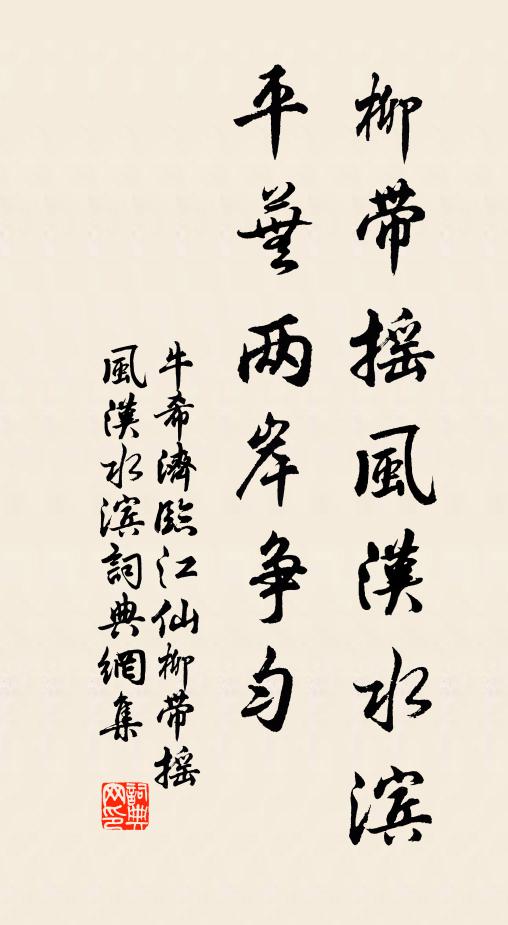 柳带摇風漢水滨
平蕪两岸争匀
牛希濟臨江仙柳带摇
風漢水滨詞典網集
詞典网印